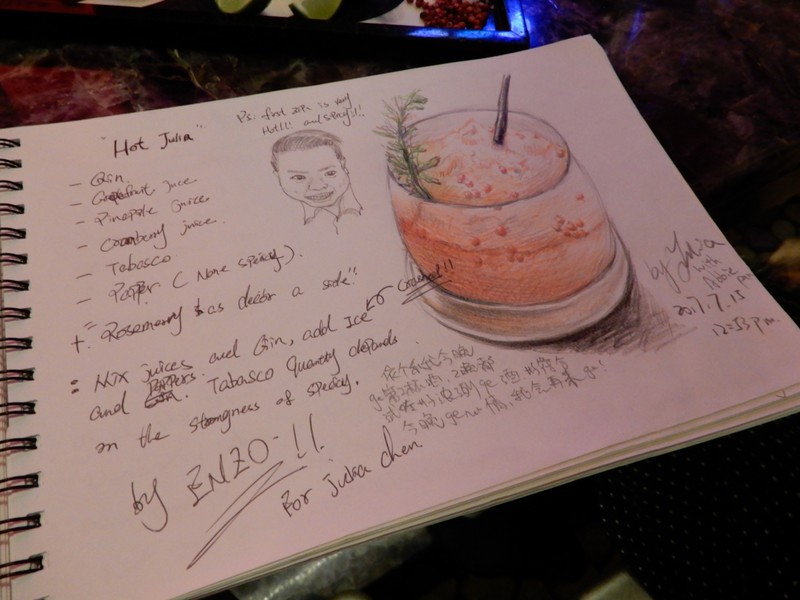 "Hot Julia"
Ps: first sip is very
Hot!!! and spicy!!!
- Gin.
- Grapefruit juice
- Pineaple juice
- Cranberry juice.
- Tabasco
- Pepper. ( None speacy).
+. Rosemerry as decor a side"
: Mix juices and Gin, add Ice Crashed!!
and Peppers. Tabasco Quantity depands
on the strongness of speacy.
by ENZO-!!
For Julia chen.
by Julia
with
Abbie
2017.7.15
12:53 p.m.